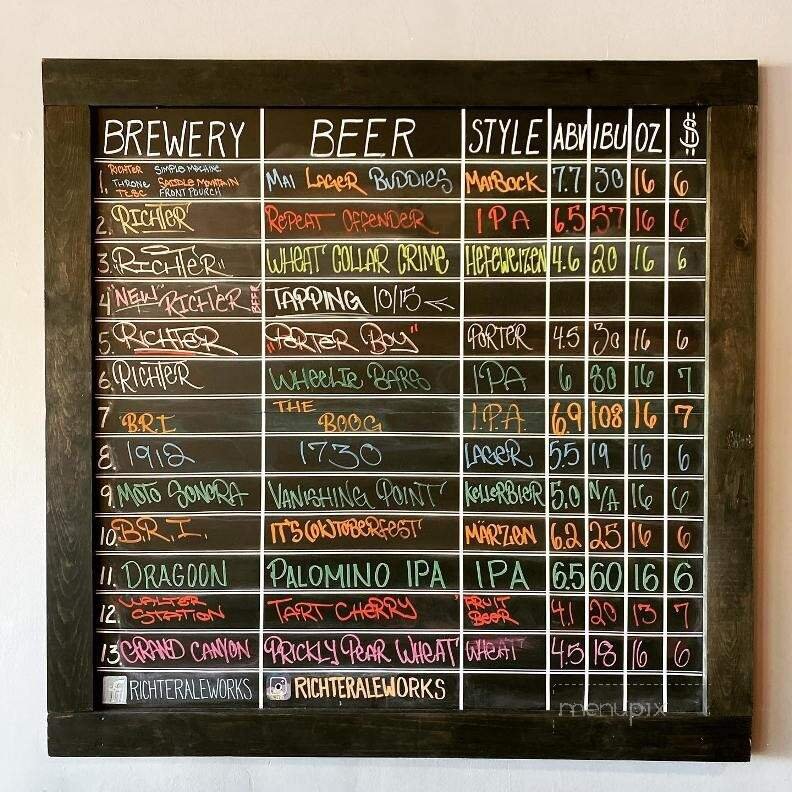 BREWERY BEER STYLE ABV IBU OZ $
1. RICHTER SIMPLE MACHINE THRONE SADDLE MOUNTAIN TCBC FRONT POURCH MAI LAGER BUDDIES MAIBOCK 7.7 30 16 6
2. RICHTER REPEAT OFFENDER IPA 6.5 57 16 6
3. "RICHTER" WHEAT COLLAR CRIME HEFEWEIZEN 4.6 20 16 6
4 "NEW" RICHTER BEER TAPPING 10/15 ←
5. RICHTER "PORTER BOY" PORTER 4.5 30 16 6
6. RICHTER WHEELIE BARS IPA 6 80 16 7
7 B.R.I THE BCOG I.P.A. 6.9 108 16 7
8. 1912 1730 LAGER 5.5 19 16 6
9. MOTO SONORA VANISHING POINT KELLERBIER 5.0 N/A 16 6
10. B.R.I. IT'S (OK)TOBERFEST MÄRZEN 6.2 25 16 6
11. DRAGOON PALOMINO IPA IPA 6.5 60 16 6
12. WALTER STATION TART CHERRY FRUIT BEER 4.1 20 13 7
13. GRAND CANYON PRICKLY PEAR WHEAT WHEAT 4.5 18 16 6
RICHTERALEWORKS RICHTERALEWORKS
menupix